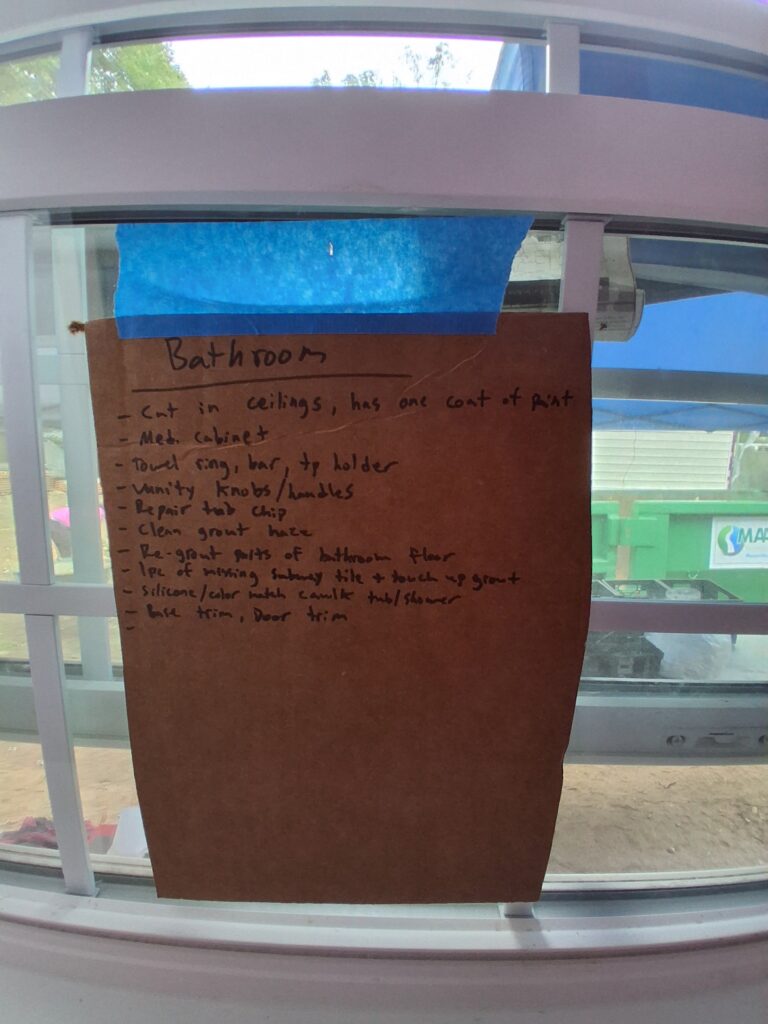 Bathroom
- Cut in ceilings, has one coat of paint
- Med. cabinet
- Towel ring, bar, tp holder
- Vanity knobs/handles
- Repair tub chip
- Clean grout haze
- Re-grout parts of bathroom floor
- 1pc of missing subway tile + touch up grout
- Silicone/color match caulk tub/shower
- Base trim, Door trim
-